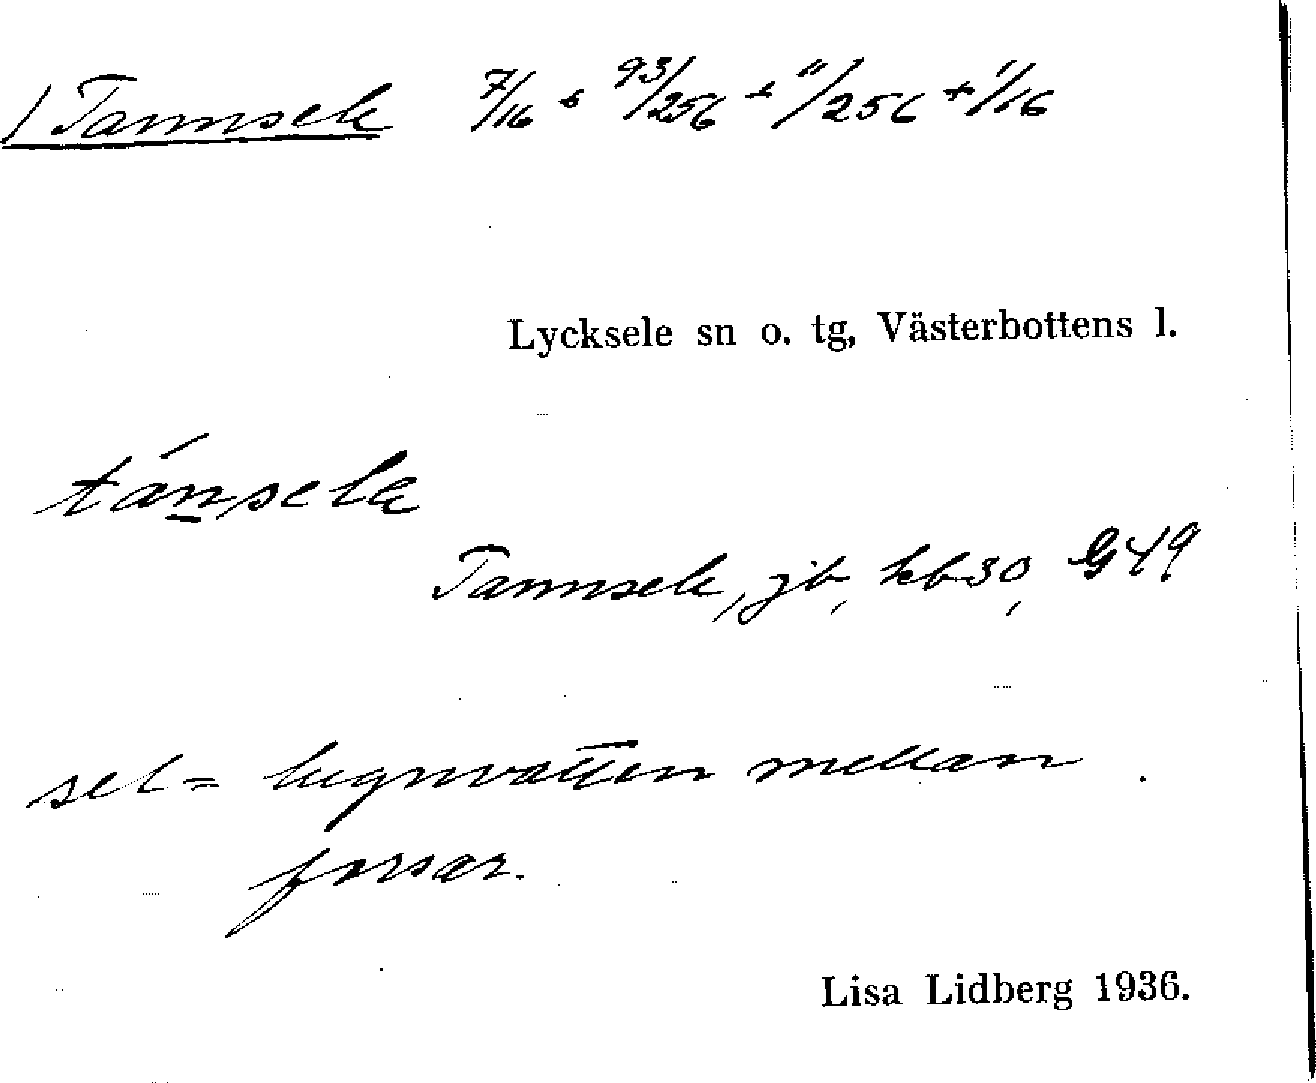 1 Tannsele 7/16 + 93/256 + 11/256 + 1/16
Lycksele sn o. tg, Västerbottens l.
tánsela
Tannsele, jb, hb 30, G 49
sel = lugnvatten mellan
forsar.
Lisa Lidberg 1936.